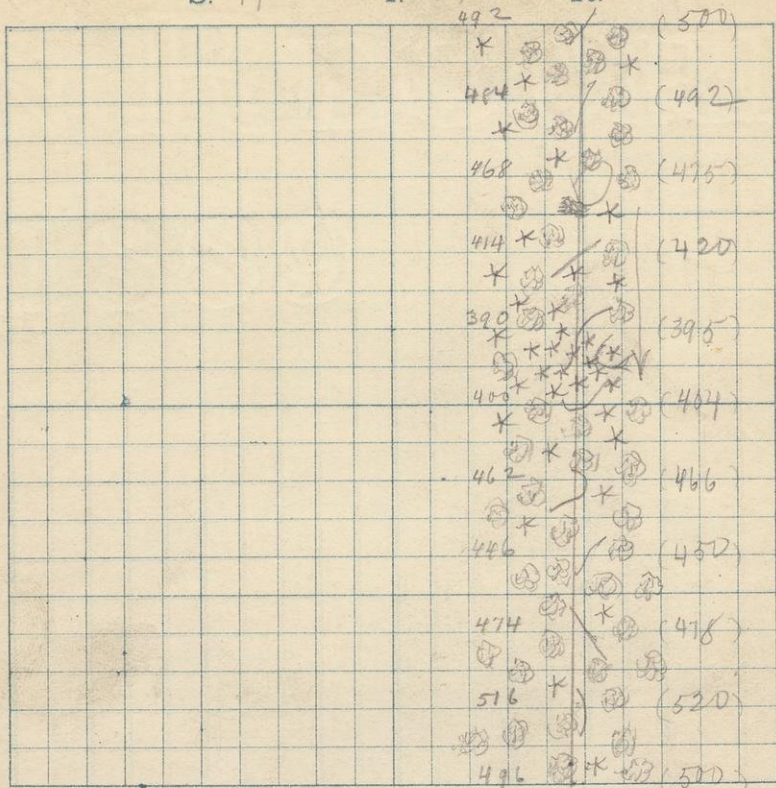 492 (500)
484 (492)
468 (475)
414 (420
390 (395)
400 (404)
462 (466)
446 (450)
474 (478)
516 (520)
496 (500)